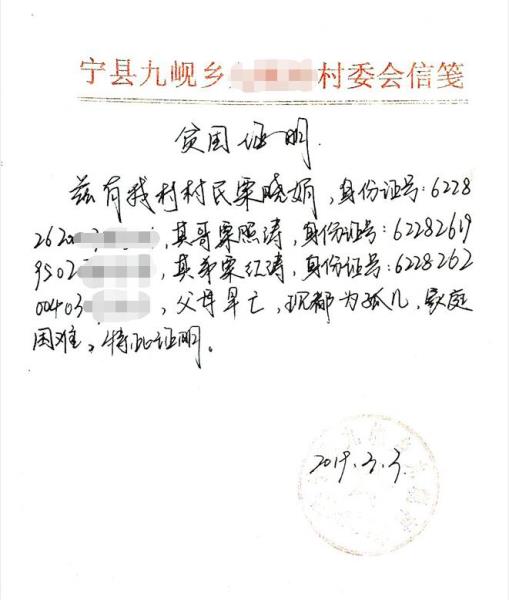 宁县九岘乡 村委会信笺
贫困证明
兹有我村村民栗晓娟,身份证号:6228
262 ,其哥栗照涛,身份证号:62282619
9502 ,其弟栗红涛,身份证号:6228262
00403 ,父母早亡,现都为孤儿,家庭
困难,特此证明。
2019.3.3